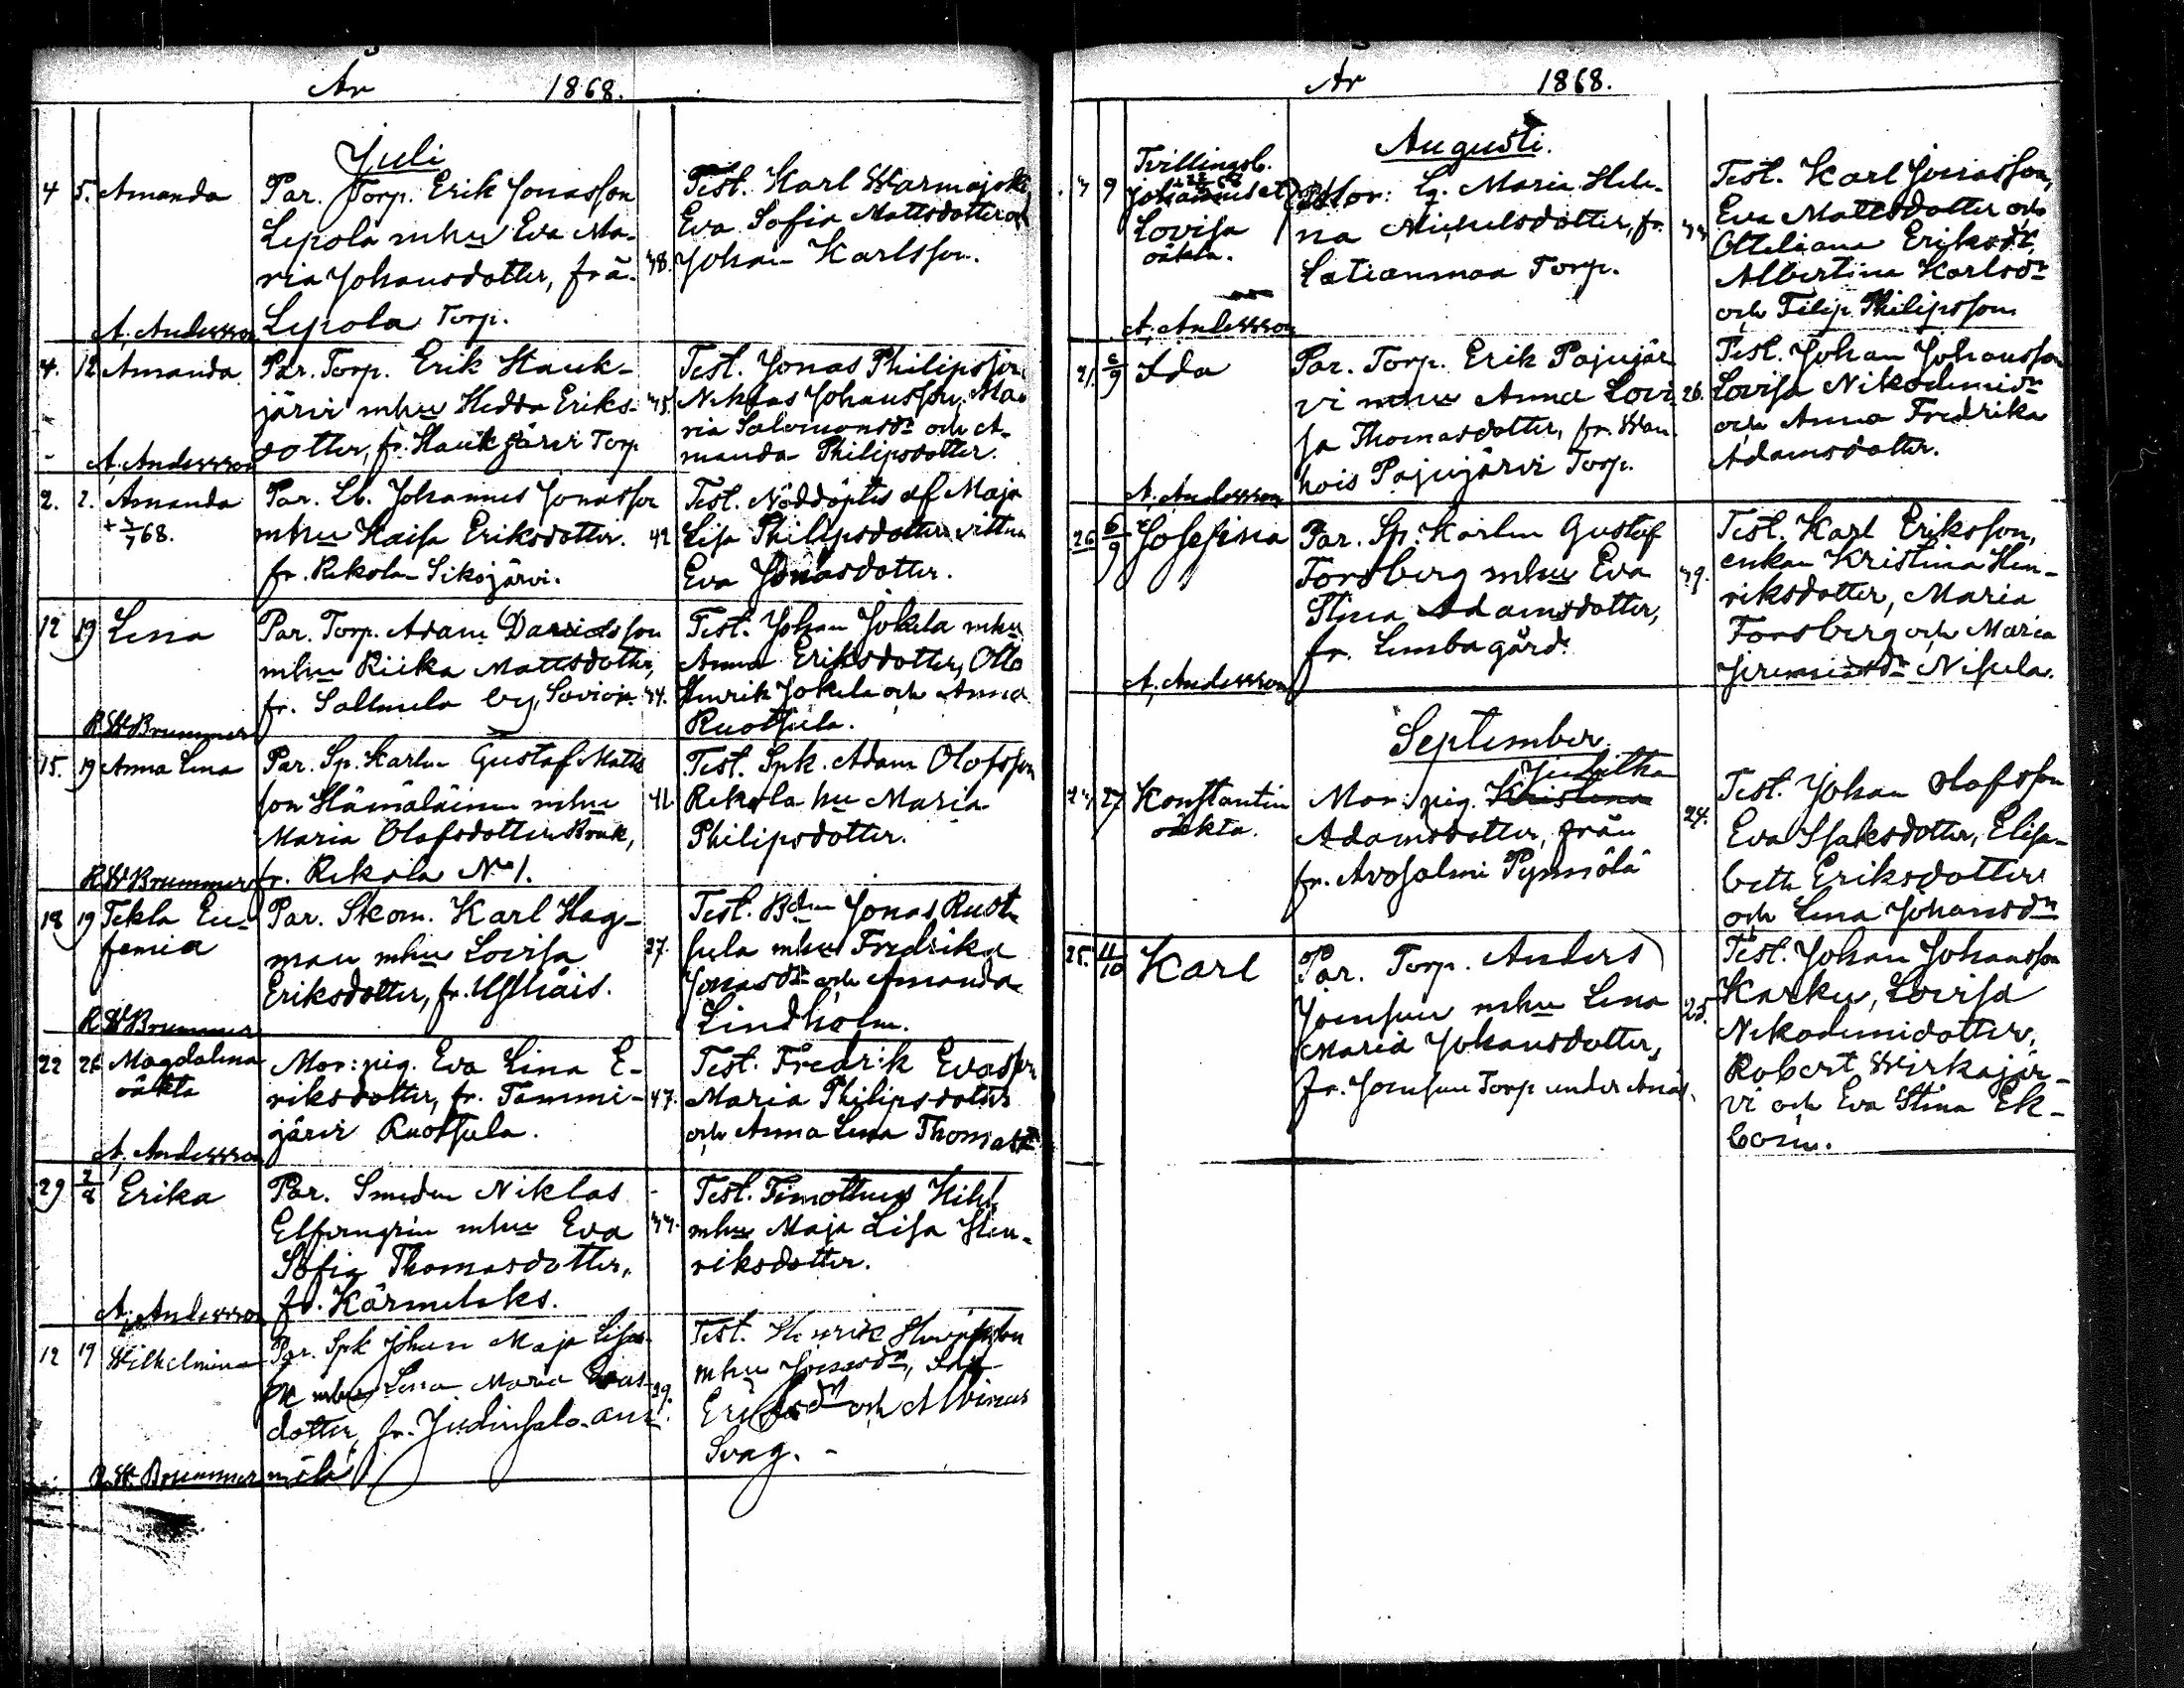 År 1868.
Juli
4 5. Amanda
Par. Torp. Erik Jonasson
Lepola mhu Eva Ma-
ria Johansdotter, frå.
Lepola Torp.
A. Andersson
38.
Test. Karl Warmajoki
Eva Sofia Mattsdotter och
Johan Karlsson.
4. 12 Amanda
Par. Torp. Erik Hauk-
järvi mhu Hedda Eriks-
dotter, fr. Haukjärvi Torp
A. Andersson
45.
Test. Jonas Philipsson
Niklas Johansson, Ma-
ria Salomonsdr och A-
manda Philipsdotter.
2. 2. Amanda
+ 7/7 68.
Par. Lb. Johannes Jonasson
mhu Kaisa Eriksdotter.
fr. Rekola Siksjärvi.
42
Test. Nöddöptes af Maja
Lisa Philipsdotter vittne
Eva Jonasdotter.
12 19 Lena
Par. Torp. Adam Davidsson
mhu Riika Mattsdotter,
fr. Sallmela by, Savioja.
R W Brummer
34.
Test. Johan Jokela mhu
Anna Eriksdotter, Otto
Henrik Jokela och Anna
Ruotsula.
15. 19 Anna Lena
Par. Sp. Karlen Gustaf Matts
son Hämäläinen mhu
Maria Olofsdotter Bruk,
fr. Rekola No 1.
R W Brummer
41.
Test. Spk. Adam Olofsson
Rekola hu Maria
Philipsdotter.
18 19 Tekla Eu-
femia
Par. Skom. Karl Hag-
man mhu Lovisa
Eriksdotter, fr.
R W Brummer
27.
Test. Bdn Jonas Ruot-
sula mhu Fredrika
Jonasdr och Amanda
Lindholm.
22 26 Magdalena
oäkta
Mor: pig. Eva Lina E-
riksdotter, fr. Tammi-
järvi Ruotsula.
A. Andersson
47.
Test. Fredrik Evasson
Maria Philipsdotter
och Anna Lena Thomasdr
29 2/8 Erika
Par. Smeden Niklas
Elfvengrin mhu Eva
Sofia Thomasdotter,
fr. Kärmelaks.
A. Andersson
37.
Test. Timotheus Kihl
mhu Maja Lisa Hen-
riksdotter.
12 19 Wilhelmina
Par. Spk Johan Maja Lisas
son mhu Lena Maria Evas-
dotter, fr. Judinsalo Aur
mäla
R. W. Brummer
29.
Test. Henrik
mhu Jonasdr, Ida
Eriksdr och Albinus
Svag.
År 1868.
Augusti.
7 9 Tvillingsb.
Johannes et
Lovisa
oäkta.
A. Andersson
Mor: Lg. Maria Hele-
na Michelsdotter, fr.
Latianmaa Torp.
33
Test. Karl Jonasson,
Eva Mattsdotter och
Otteliana Eriksdr,
Albertina Karlsdr
och Filip Philipsson
21. 6/9 Ida
Par. Torp. Erik Pajujär
vi mhu Anna Lovi-
sa Thomasdotter, fr. Wan-
hois Pajujärvi Torp.
A. Andersson
26.
Test. Johan Johansson
Lovisa Nikodemidr
och Anna Fredrika
Adamsdotter.
26 6/9 Josefina
Par. Sp. Karlen Gustaf
Forsberg mhu Eva
Stina Adamsdotter,
fr. Limba gård.
A. Andersson
39.
Test. Karl Eriksson,
enkan Kristina Hen-
riksdotter, Maria
Forsberg och Maria
Jeremiasdr Nisula.
September
27 27 Konstantin
oäkta.
Juditha
Mor: pig. Kristina
Adamsdotter, från
fr. Avosalmi Pynnölä
24.
Test. Johan Olofsson
Eva Isaksdotter, Elisa-
beth Eriksdotter
och Lena Johansdr
25. 11/10 Karl
Par. Torp. Anders
Joensuu mhu Lena
Maria Johansdotter,
fr. Joensuu Torp under Anäs.
25.
Test. Johan Johansson
Karku, Lovisa
Nikodemidotter,
Robert Wirkajär-
vi och Eva Stina Ek-
bom.